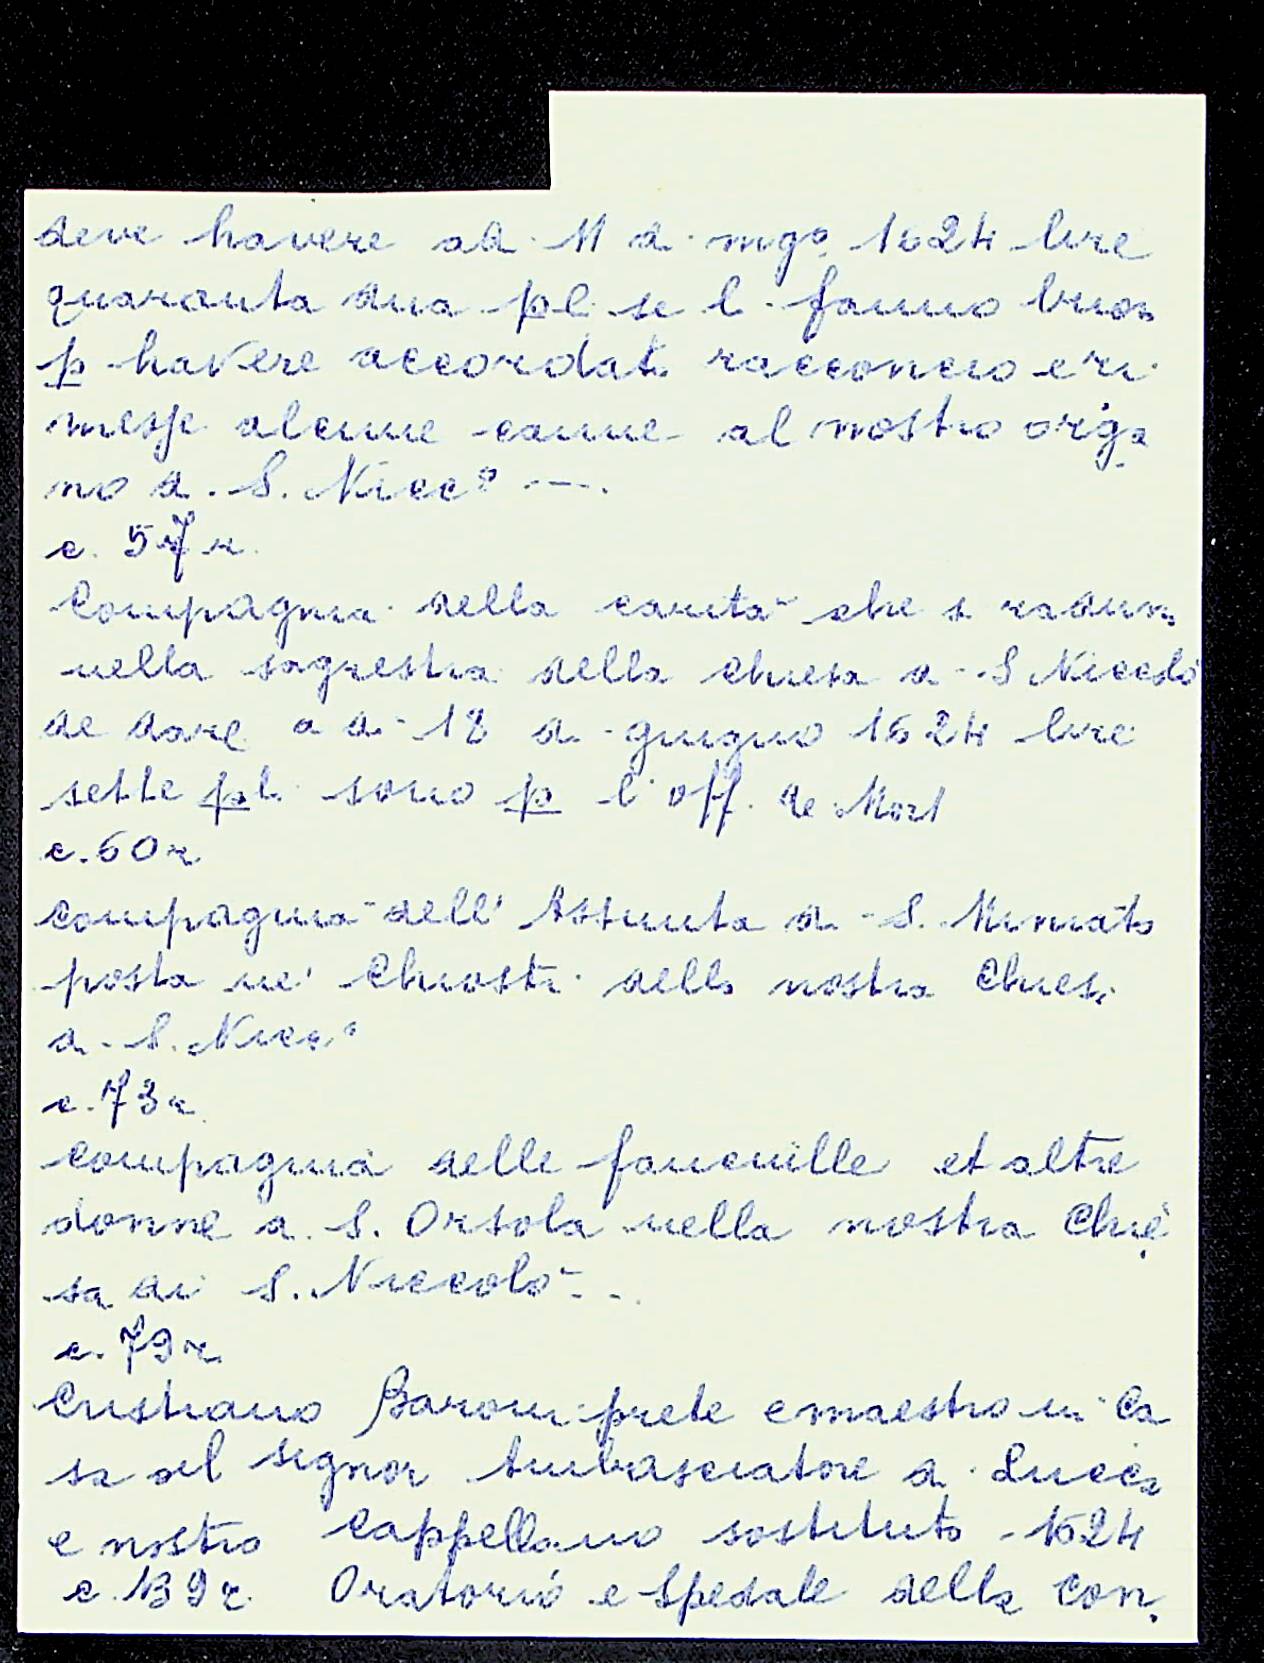 deve havere a dì 11 di mgº 1624 lire
quaranta dua pl. se li fanno buon
p havere accordato racconcio e ri
messe alcune canne al nostro orga
no di S. Niccº ---.
c. 57r.
Compagnia della carità che si raduna
nella sagrestia della chiesa di S Niccolò
de dare a dì 18 di giugno 1624 lire
sette pl. sono p l'off. de Morti
c. 60r
Compagnia dell'Assunta di S. Miniato
posta ne' Chiostri della nostra Chiesa
di S. Niccº
c. 73r
Compagnia delle fanciulle et altre
donne di S. Orsola nella nostra Chie
sa di S. Niccolò - . .
c. 79r.
Cristiano Baroni prete e maestro in Ca
sa del signor Ambasciatore di Lucca
e nostro cappellano sostituto - 1624
c. 139r. Oratorio e Spedale della Con.